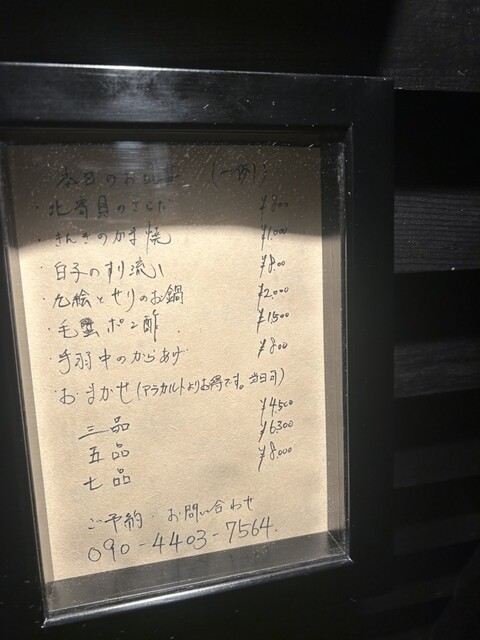 本日のお料理 (一例)
・北寄貝のさらだ ¥800
・きんきのかま焼 ¥1,000
・白子のすり流し ¥800
・九絵とせりのお鍋 ¥2,000
・毛蟹ポン酢 ¥1,500
・手羽中のからあげ ¥800
・おまかせ(アラカルトよりお得です。当日可)
三品 ¥4,500
五品 ¥6,300
七品 ¥8,000
ご予約・お問い合わせ
090-4403-7564.